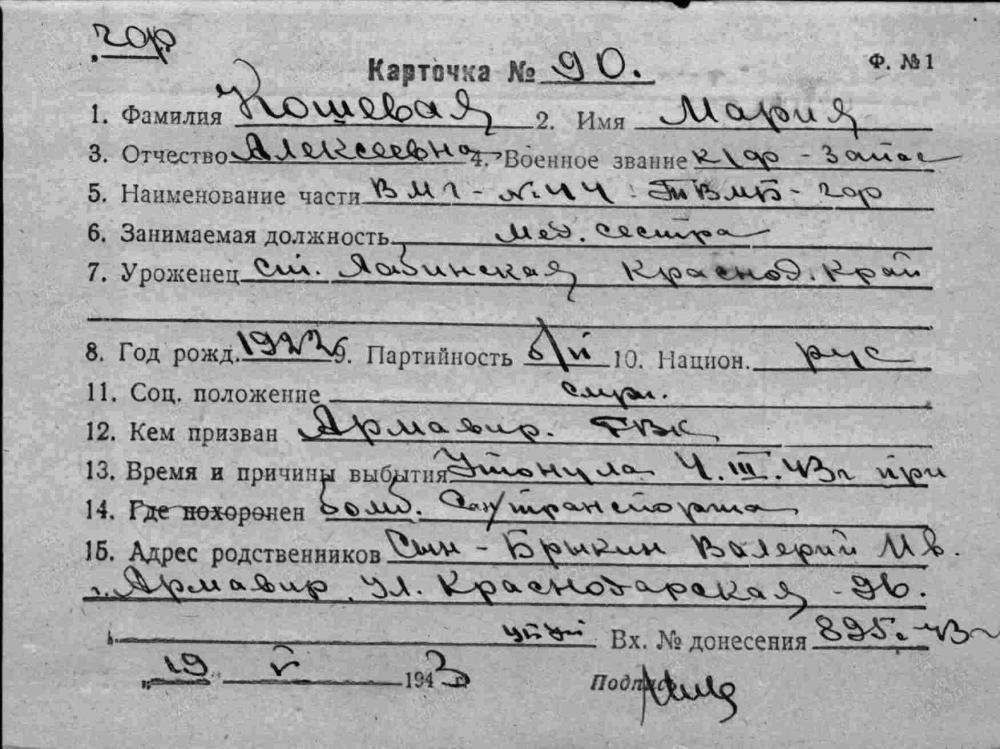 чор
Карточка № 90. Ф. №1
1. Фамилия Кошевая 2. Имя Мария
3. Отчество Алексеевна 4. Военное звание к/ф - запас
5. Наименование части ВМГ - № 44: ВМБ - чор
6. Занимаемая должность Мед. сестра
7. Уроженец ст. Лабинская Краснод. край
8. Год рожд. 1922 9. Партийность б/п 10. Национ. рус
11. Соц. положение служ.
12. Кем призван Армавир. ГВК
13. Время и причины выбытия Утонула 4.III.43г при
14. Где похоронен бомб. Сан/транспорта
15. Адрес родственников Сын - Брыкин Валерий Ив.
г. Армавир, ул. Краснодарская - 96.
Вх. № донесения 895с-43г
„19 V 1943 Подпись